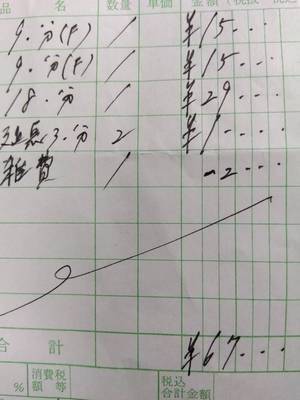 品 名 数量 単価 金額(税抜・税込)
9・分(F) 1 ¥15・・・
9・分(F) 1 ¥15・・・
18・分 1 ¥29・・・
3・分 2 ¥1・・・・
雑費 1 -2・・・
合 計 ¥67・・・
% 消費税額等 税込合計金額